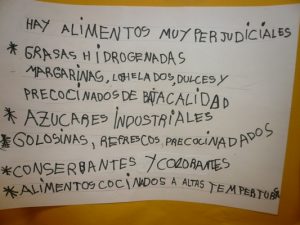 HAY ALIMENTOS MUY PERJUDICIALES
* GRASAS HIDROGENADAS
MARGARINAS, LOHELADOS, DULCES Y
PRECOCINADOS DE BATACALIDAD
* AZUCARES INDUSTRIALES
* GOLOSINAS, REFRESCOS, PRECOCINADADOS
* CONSERBANTES Y COLORANTES
* ALIMENTOS COCINADOS A ALTAS TEMPERTURA